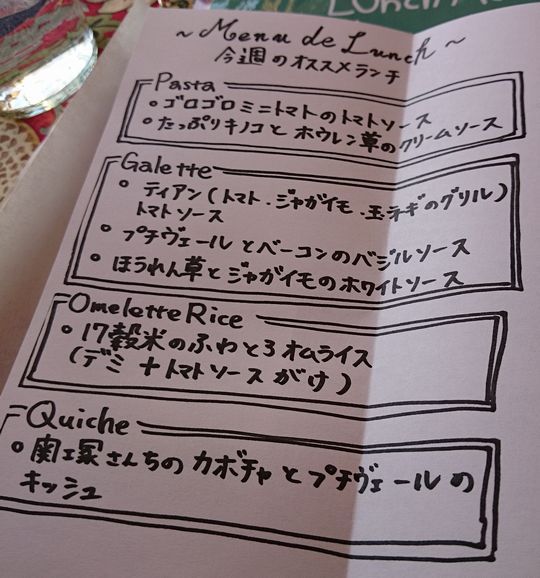 LUNCH
~ Menu de Lunch ~
今週のオススメランチ
Pasta
・ゴロゴロミニトマトのトマトソース
・たっぷりキノコとホウレン草のクリームソース
Galette
・ティアン(トマト・ジャガイモ・玉ネギのグリル)
トマトソース
・プチヴェールとベーコンのバジルソース
・ほうれん草とジャガイモのホワイトソース
Omelette Rice
・17穀米のふわとろオムライス
(デミ+トマトソースがけ)
Quiche
・関塚さんちのカボチャとプチヴェールの
キッシュ